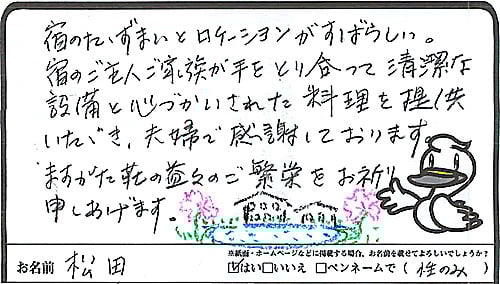 宿のたたずまいとロケーションがすばらしい。
宿のご主人ご家族が手をとり合って清潔な
設備と心づかいされた料理を提供
いただき、夫婦で感謝しております。
ますがた荘の益々のご繁栄をお祈り
申しあげます。
※紙面・ホームページなどに掲載する場合、お名前を載せてよろしいでしょうか?
お名前 松田 ☑はい□いいえ □ペンネームで(姓のみ)